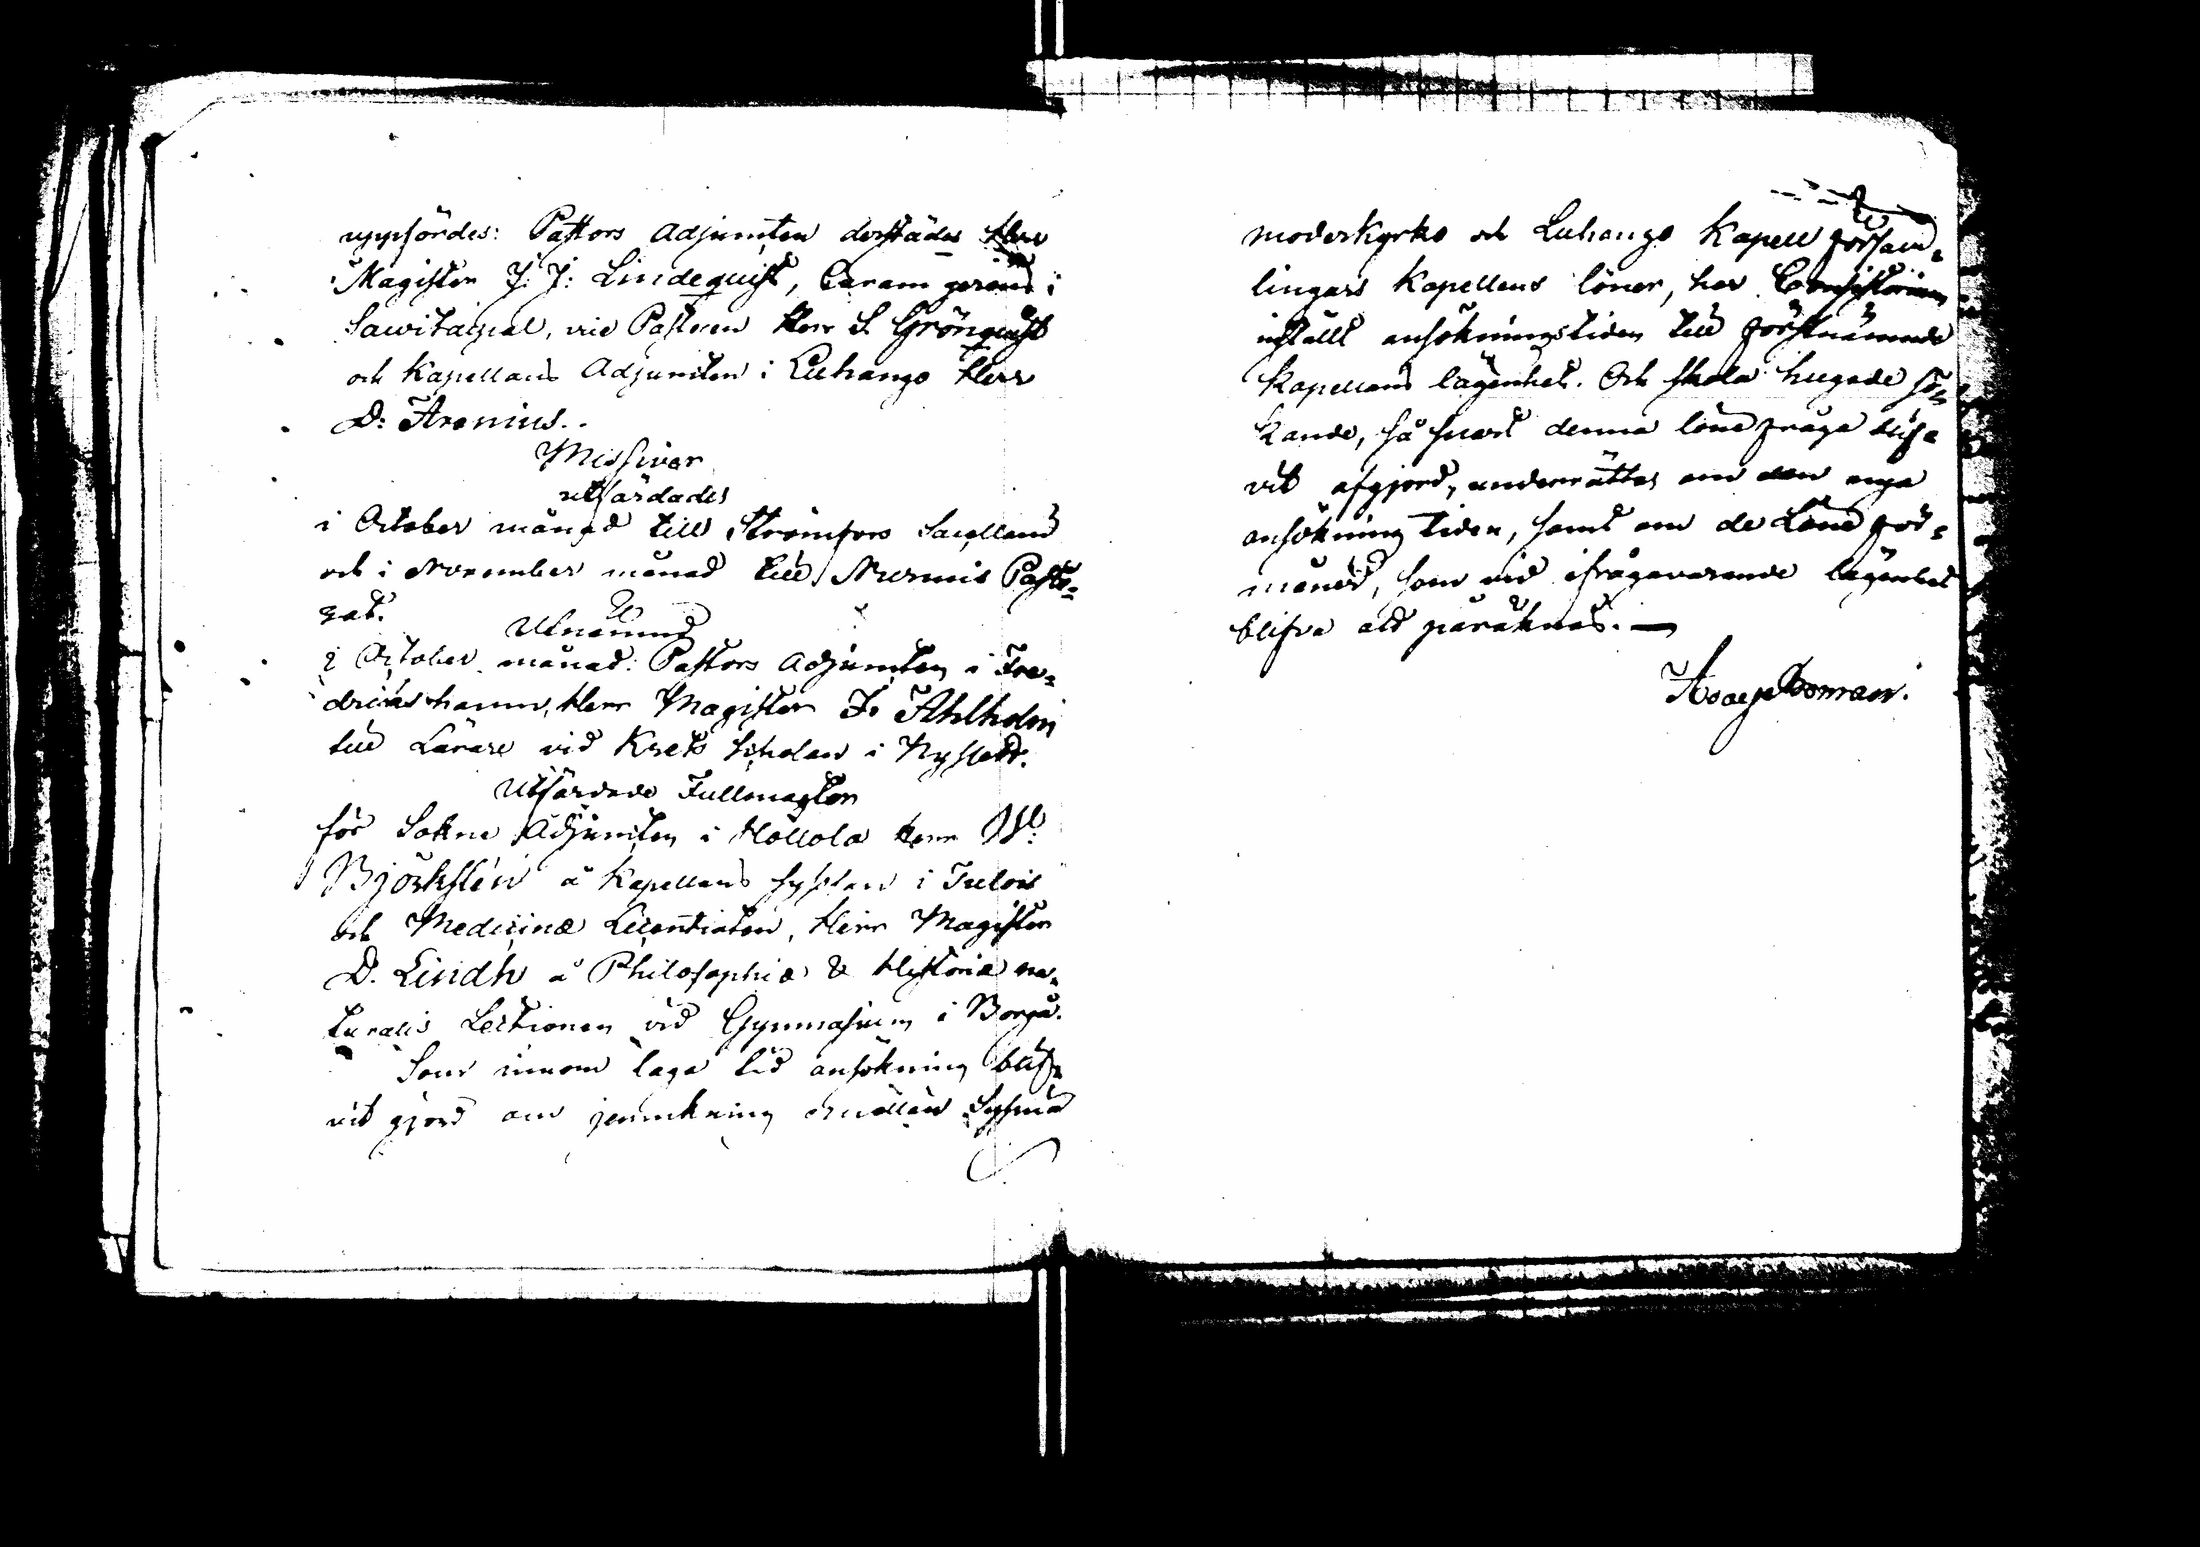 uppfördes: Pastors Adjuncten derstädes Herr
Magister J: J: Lindequist, Curam gerens i
Sawitaipal, vice Pastoren Herr S. Grönquist
och Kapellans Adjuncten i Luhango Herr
D: Arenius.
Missiver
utfärdades
i October månad till Strömfors Saarland
och i November månad till Nurmis Pasto-
rat.
Utnämnd
i October månad: Pastors Adjuncten i Fre-
drikshamn, Herr Magister F. Ahlholm
till Lärare vid Krets Scholan i Nystadt.
Utfärdade Fullmagter
för Sockne Adjuncten i Hollola Herr W:
Björkstén å Kapellans syslan i Tulois
och Medicinæ Licentiaten, Herr Magister
D. Lindh å Philosophiæ & Historiæ na-
turalis Lectionen vid Gymnasium i Borgå.
Som innom laga tid ansökning blif-
vit gjord om jemnkning emellan Sysmä
moderkyrko och Luhango Kapell försam-
lingars Kapellens löner, har Consistorium
inställt ansökningstiden till förstnämnde
Kapellans lägenhet. Och skola hugade sö-
kande, så snart denna lönefråga blif-
vit afgjord, underrättas om den nya
ansökning tiden, samt om de Löne för-
måner, som vid ifrågavarande lägenhet
blifva att påräknas. —